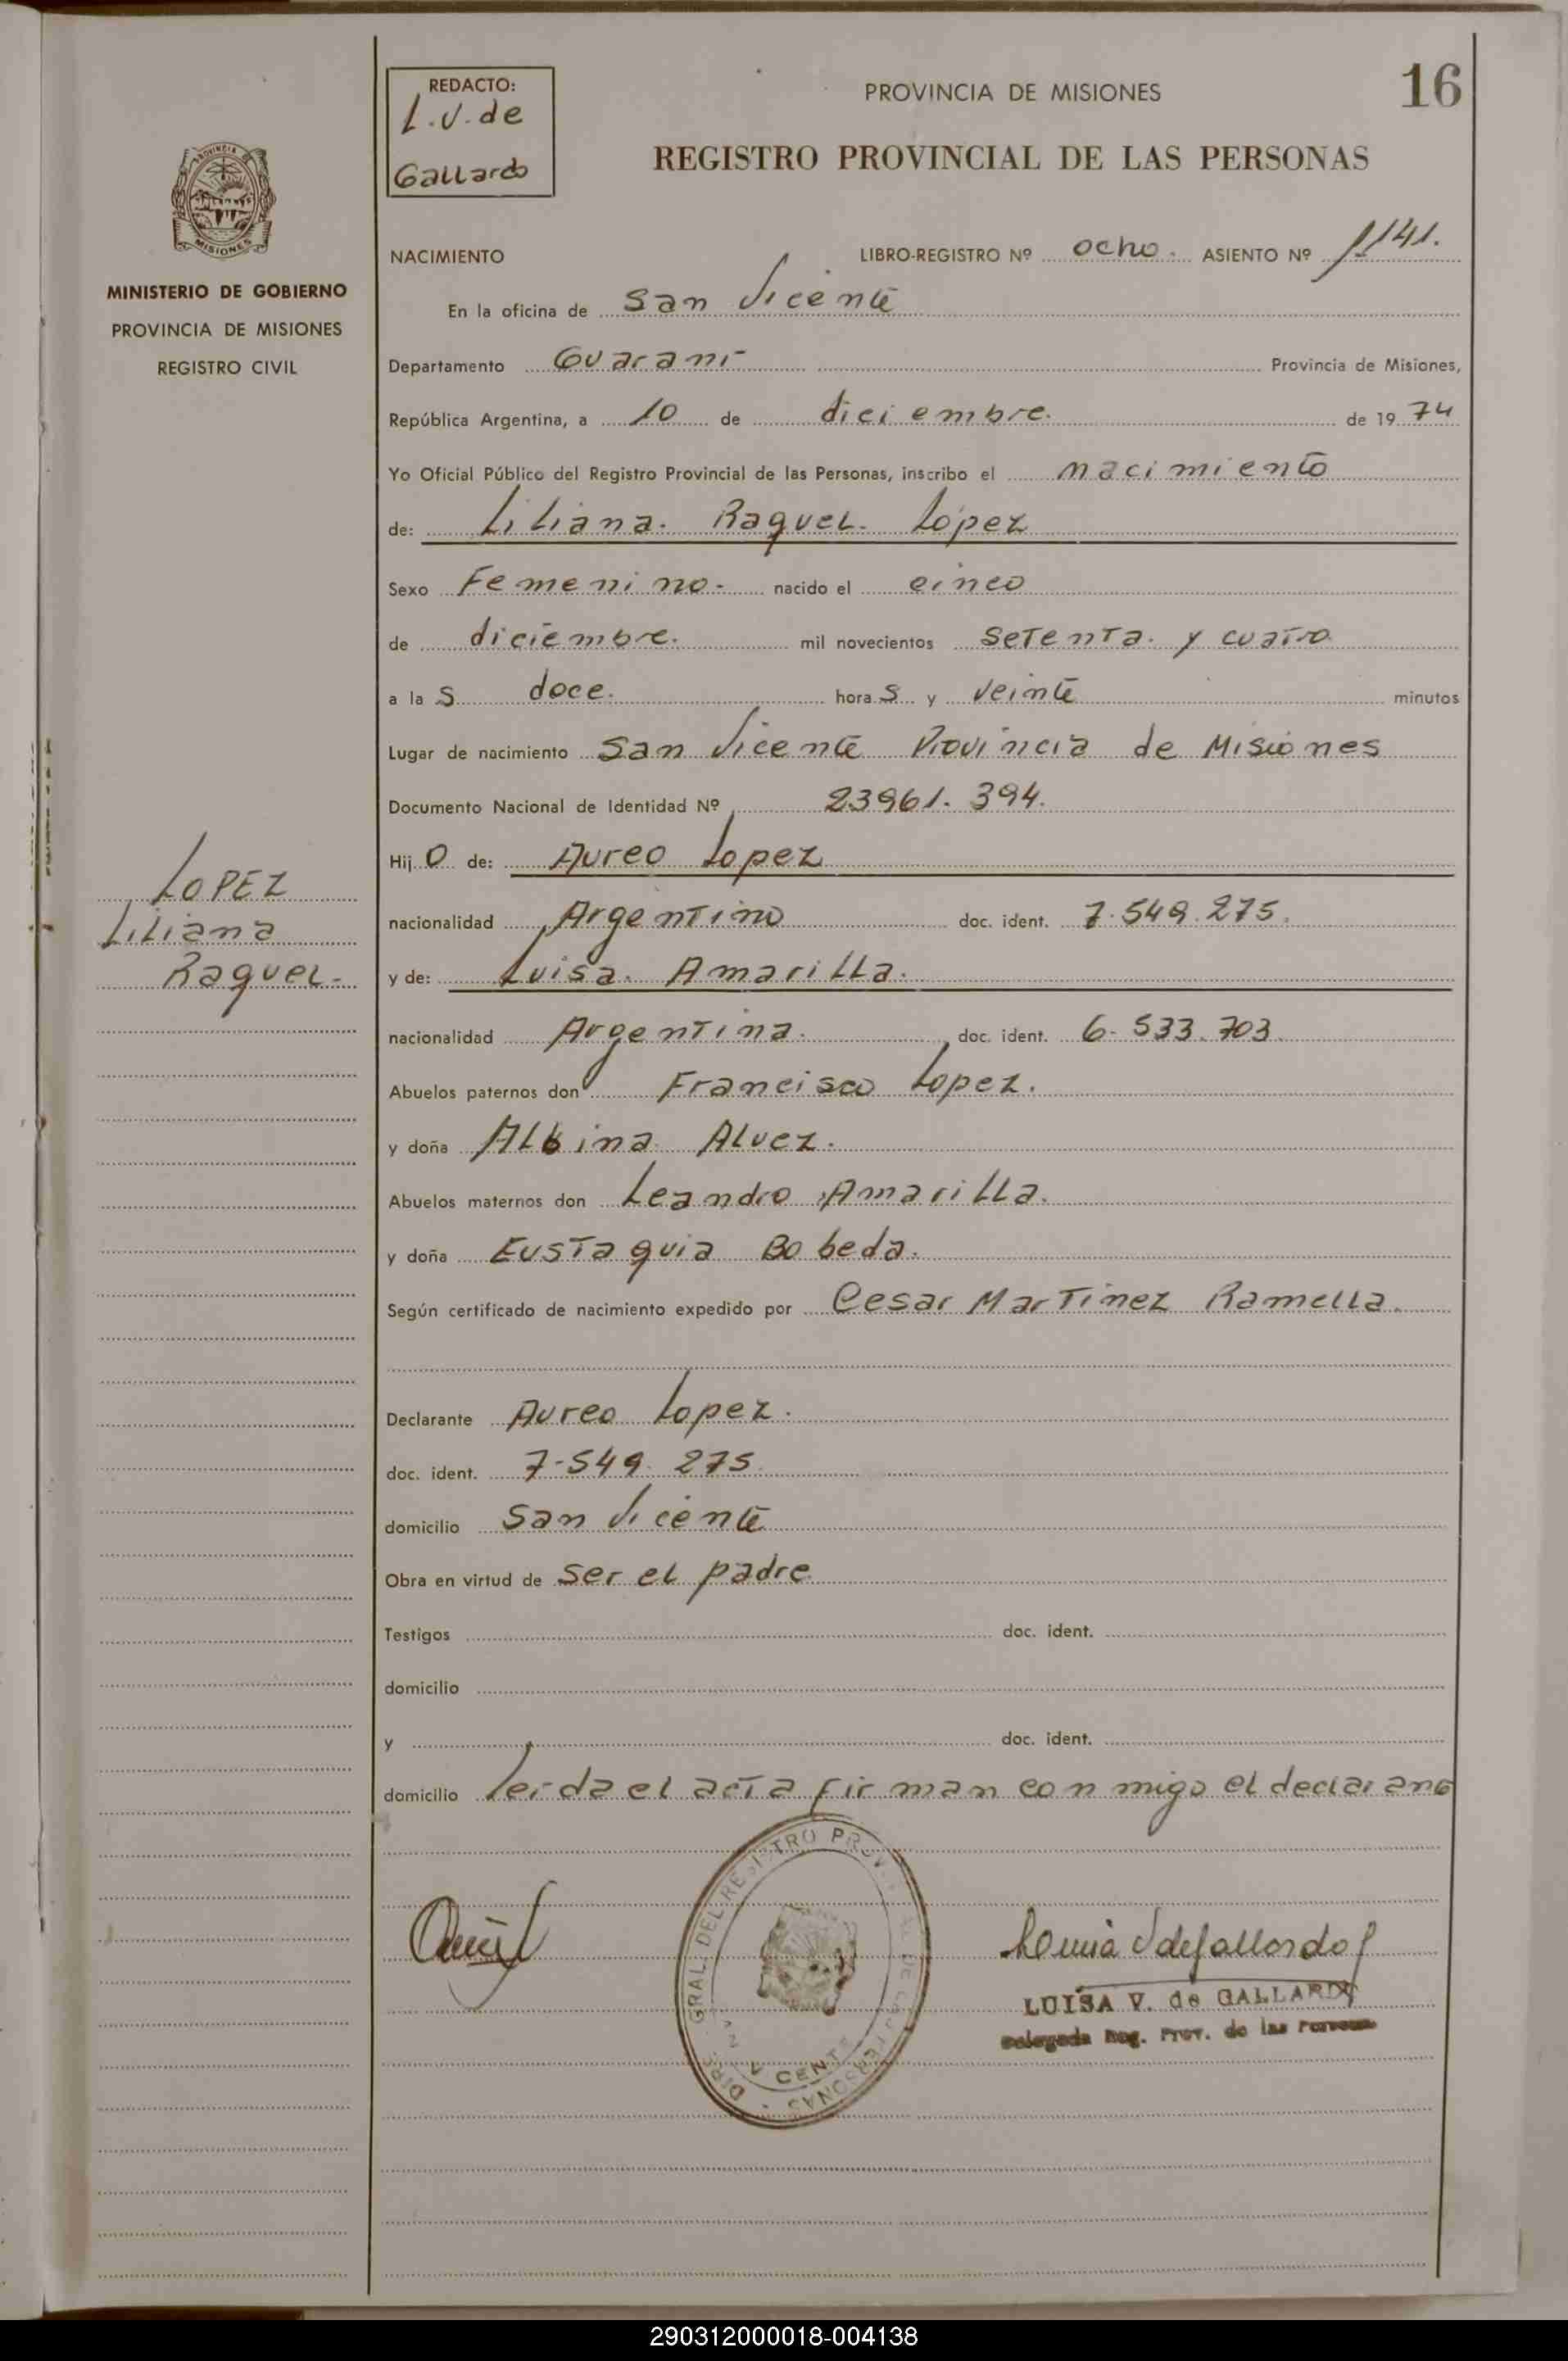 16
REDACTO:
L.V. de
Gallardo
PROVINCIA DE MISIONES
REGISTRO PROVINCIAL DE LAS PERSONAS
PROVINCIA DE
MISIONES
MINISTERIO DE GOBIERNO
PROVINCIA DE MISIONES
REGISTRO CIVIL
NACIMIENTO LIBRO-REGISTRO Nº ocho. ASIENTO Nº 1141.
En la oficina de San Vicente
Departamento Guaraní Provincia de Misiones,
República Argentina, a 10 de diciembre. de 19 74
Yo Oficial Público del Registro Provincial de las Personas, inscribo el nacimiento
de: Liliana. Raquel. López
Sexo Femenino.- nacido el cinco
de diciembre. mil novecientos setenta. y cuatro
a la s doce. hora s y veinte minutos
Lugar de nacimiento San Vicente Provincia de Misiones
Documento Nacional de Identidad Nº 23961.394.
Hij o de: Aureo Lopez
nacionalidad Argentino doc. ident. 7.549.275.
y de: Luisa. Amarilla.
nacionalidad Argentina. doc. ident. 6-533.703.
Abuelos paternos don Francisco Lopez.
y doña Albina Alvez.
Abuelos maternos don Leandro Amarilla.
y doña Eustaquia Bobeda.
Según certificado de nacimiento expedido por Cesar Martinez Ramella.
Declarante Aureo Lopez.
doc. ident. 7-549.275.
domicilio San Vicente
Obra en virtud de ser el padre
Testigos doc. ident.
domicilio
y doc. ident.
domicilio leida el acta firman conmigo el declarante
LOPEZ
Liliana
Raquel-
DIRE. GRAL. DEL REGISTRO PROV. DE LAS PERSONAS
LUISA V. de GALLARDO
Delegada Reg. Prov. de las Personas
290312000018-004138